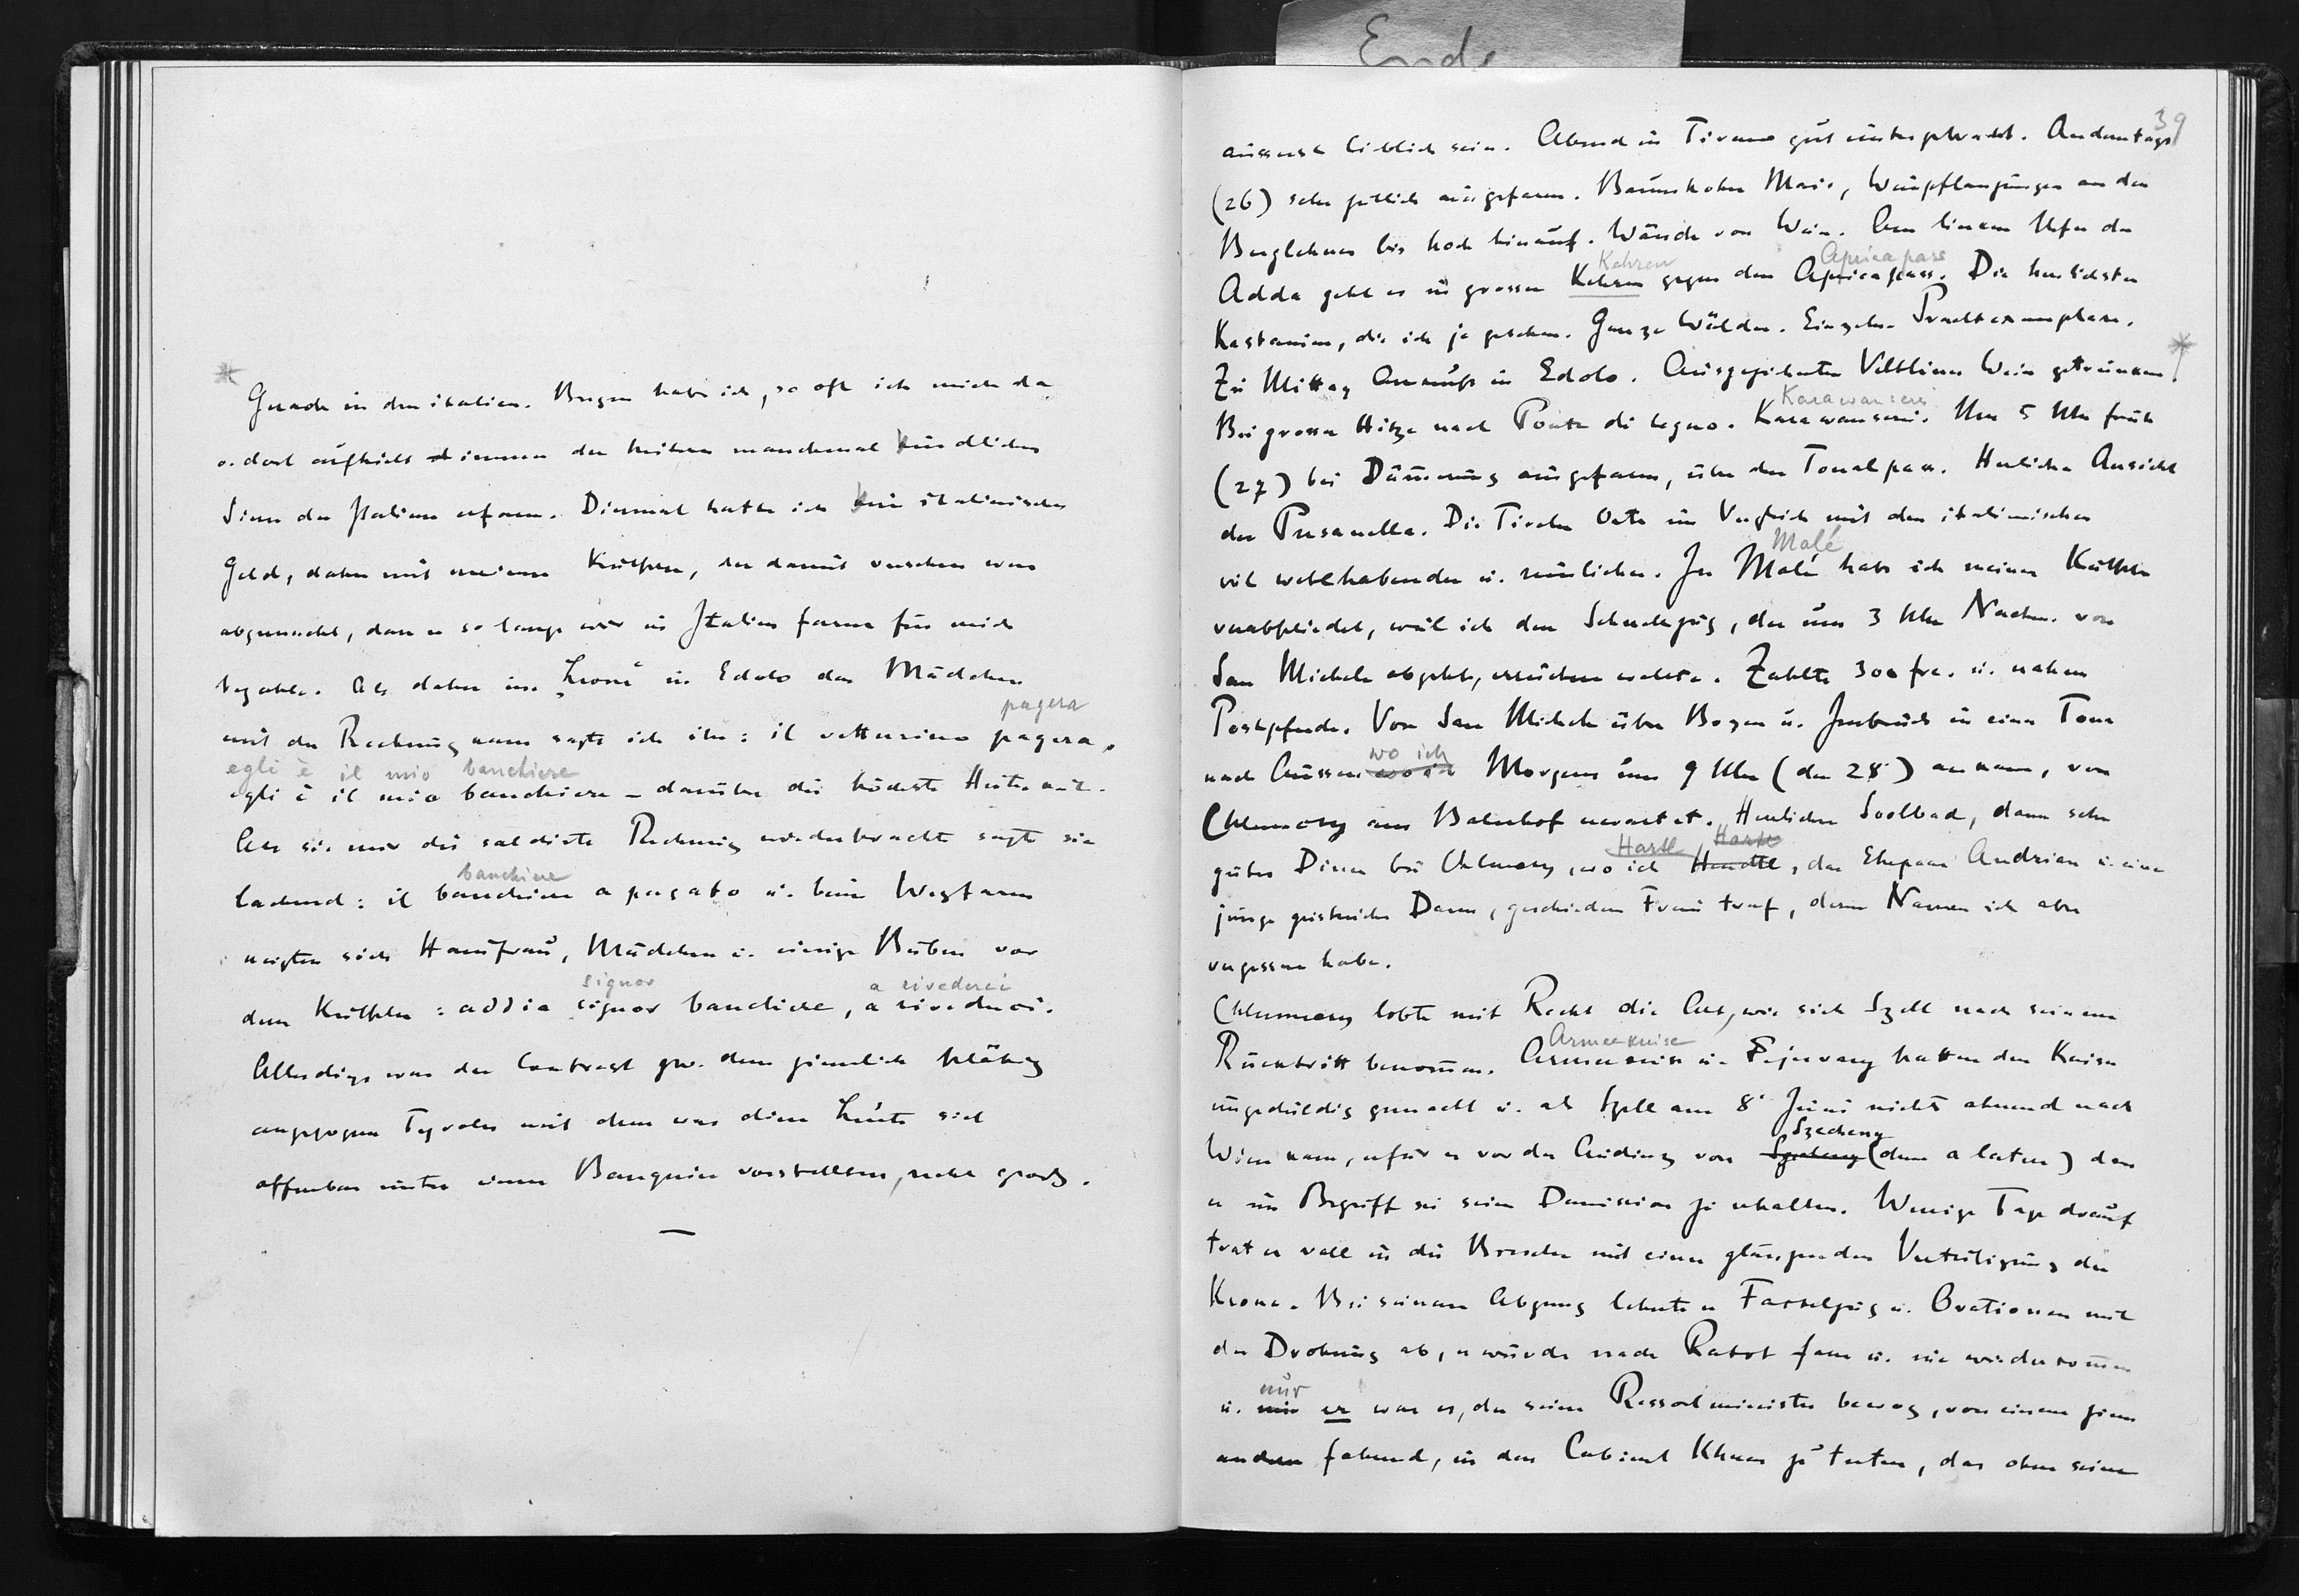 Ende
*
Gerade in den italien. Bergen habe ich, so oft ich mich da
o. dort aufhielt immer den heitern manchmal kindlichen
Sinn der Italiener erfaren. Diesmal hatte ich kein italienisches
Geld, daher mit meinem Kutscher, der damit versehen war
abgemacht, dass er so lange wir in Italien faren für mich
bezahle. Als daher im Leone in Edolo das Mädchen
pagera
mit der Rechnung kam sagte ich ihr: il vetturino pagera,
egli è il mio banchiere
egli è il mio banchiere – darüber die höchste Heiterkeit.
Als sie mir die saldirte Rechnung wiederbrachte sagte sie
banchiere
lachend: il banchiere a pagato u. beim Wegfaren
neigten sich Hausfrau, Mädchen u. einige Buben vor
signor a rivederci
dem Kutscher: addio signor banchiere, a rivederci.
Allerdings war der Contrast zw. dem ziemlich schäbig
angezogen Tyroler mit dem was diese Leute sich
offenbar unter einem Banquier vorstellten, recht gross.
—
39
äusserst lieblich sein. Abend in Tirano gut untergebracht. Anderntags
(26) sehr zeitlich ausgefaren. Baumhoher Mais, Weinpflanzungen an den
Berglehnen bis hoch hinauf. Wände von Wein. Am linken Ufer der
Kehren Apricapass
Adda geht es in grossen Kehren gegen den Apricapass. Die herlichsten
Kastanien, die ich je gesehen. Ganze Wälder. Einzelne Prachtexemplare.
*
Zu Mittag Ankunft in Edolo. Ausgezeichneten Veltliner Wein getrunken.
Karawanserei
Bei grosser Hitze nach Ponte di legno. Karawanserei. Um 5 Uhr früh
(27) bei Dämmerung ausgefaren, über den Tonalpass. Herliche Ansicht
der Presanella. Die Tiroler Orte im Vergleich mit den italienischen
Malé
viel wolhabender u. reinlicher. In Malé habe ich meinen Kutscher
verabschiedet, weil ich den Schnellzug, der um 3 Uhr Nachm. von
San Michele abgeht, erreichen wollte. Zahlte 300 frc. u. nahm
Postpferde. Von San Michele über Bozen u. Insbruck in einer Tour
wo ich
nach Aussee wo ich Morgens um 9 Uhr (den 28.) ankam, von
Chlumecky am Bahnhof erwartet. Herliches Soolbad, dann sehr
Hartl Hartl
gutes Diner bei Chlumecky, wo ich Hartl, das Ehepaar Andrian u. eine
junge geistreiche Dame, geschiedene Frau traf, deren Namen ich aber
vergessen habe.
Chlumecky lobte mit Recht die Art, wie sich Szell nach seinem
Armeekreise
Rücktritt benommen. Armeekreise u. Fejervary hatten den Kaiser
ungeduldig gemacht u. als Szell am 8. Juni nichts ahnend nach
Szecheny
Wien kam, erfur er vor der Audienz von (dem a latere) dass
er im Begriff sei seine Demission zu erhalten. Wenige Tage drauf
trat er voll in die Bresche mit einer glänzenden Verteidigung der
Krone. Bei seinem Abgang lehnte er Fackelzug u. Ovationen mit
der Drohung ab, er würde nach Ratot faren u. nie wiederkommen
nur
u. nur er war es, der seine Ressortminister bewog, von einem zum
andern farend, in das Cabinet Khuen zu treten, das ohne seine